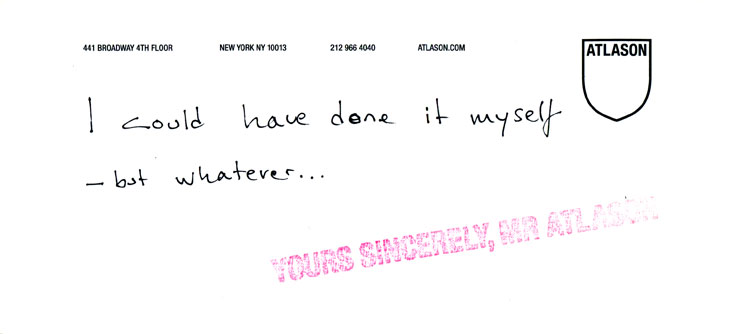 441 BROADWAY 4TH FLOOR NEW YORK NY 10013 212 966 4040 ATLASON.COM
ATLASON
I could have done it myself
– but whatever...
YOURS SINCERELY, MR ATLASON